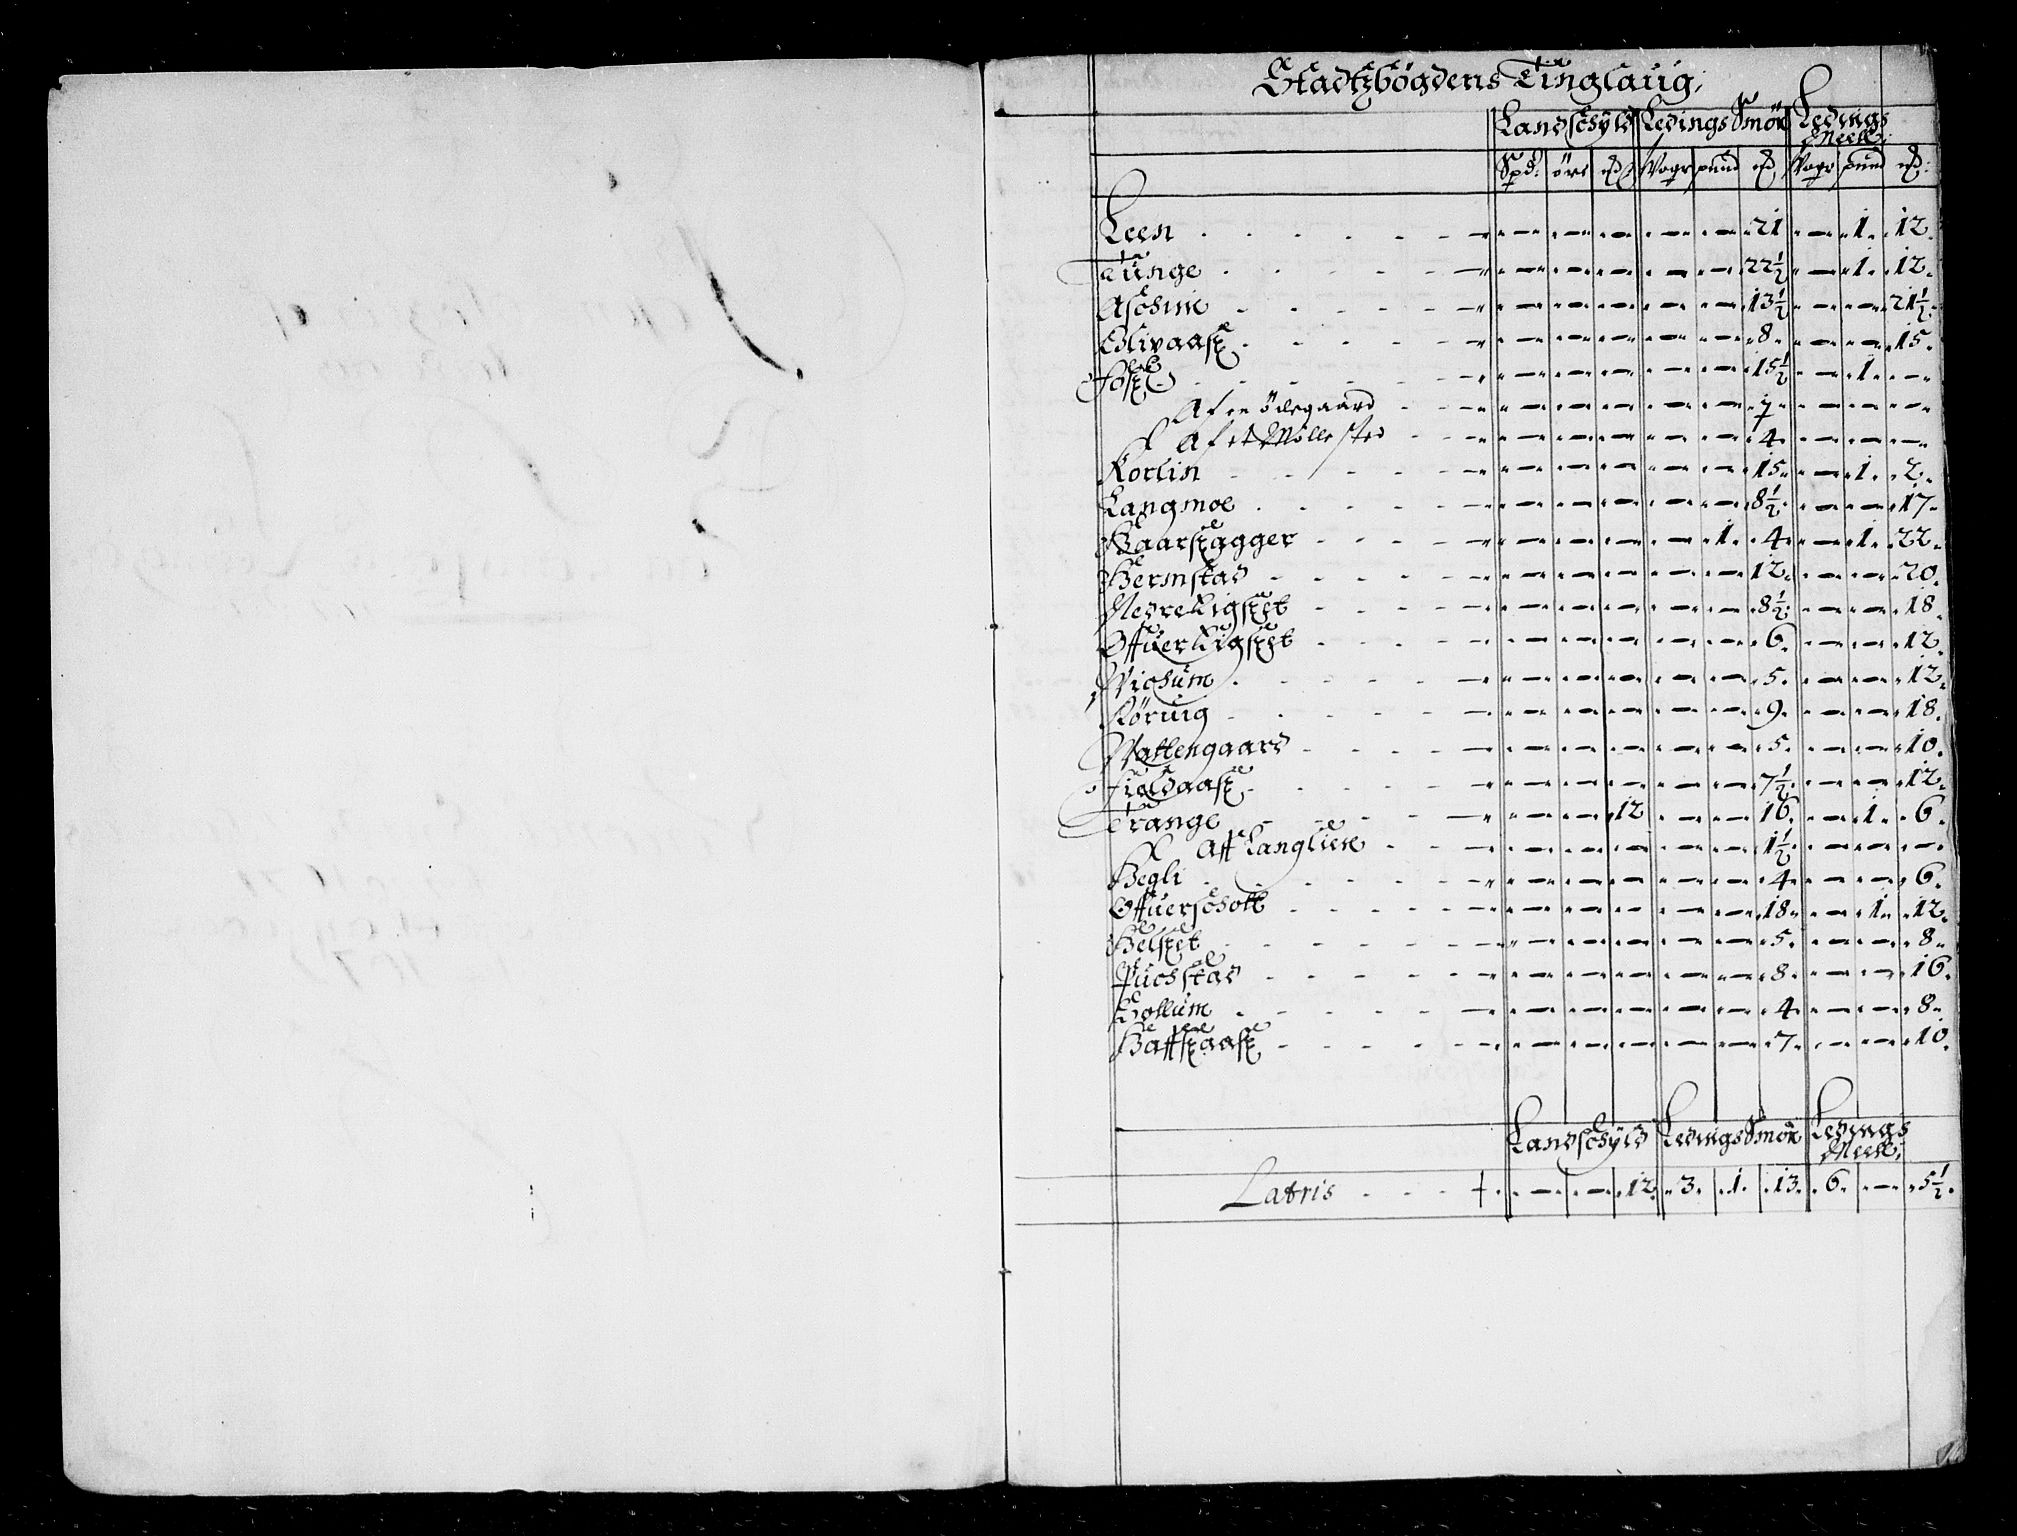 Stadtzbögdens Tinglaug;
Landschyld Ledings Smör Ledings Meell:
Spd: öre Vogr pund Vogr pund
Leen - - - 21 - 1 12
Tunge - - - 22½ - 1 12
Aschim - - - 13½ - - 21½
Elivaasz - - - 8 - - 15
Fosz - - - 15½ - 1 -
Af en ödegaard - - - 7 - - -
Af et Mölle sted - - - 4 - - -
Korlin - - - 15 - 1 2
Langmoe - - - 8½ - - 17
Baarszagger - - - 1 4 - 1 22
Hermstad - - - 12 - - 20
Nedre Rigszet - - - 8½ - - 18
Offuer Rigszet - - - 6 - - 12
Wichum - - - 5 - - 12
Röruig - - - 9 - - 18
Wattengaard - - - 5 - - 10
Fieldaasz - - - 7½ - - 12
Trange - - 12 - - 16 - 1 6
Aff Langlien - - - 1½ - - -
Hegli - - - 4 - - 6
Offuerschott - - - 18 - 1 12
Helszet - - - 5 - - 8
Puchstad - - - 8 - - 16
Sollum - - - 4 - - 8
Haffszaasz - - - 7 - - 10
Landschyld Ledings Smör Ledings Meell:
Latris - - - 12 3 1 13 6 - 5½